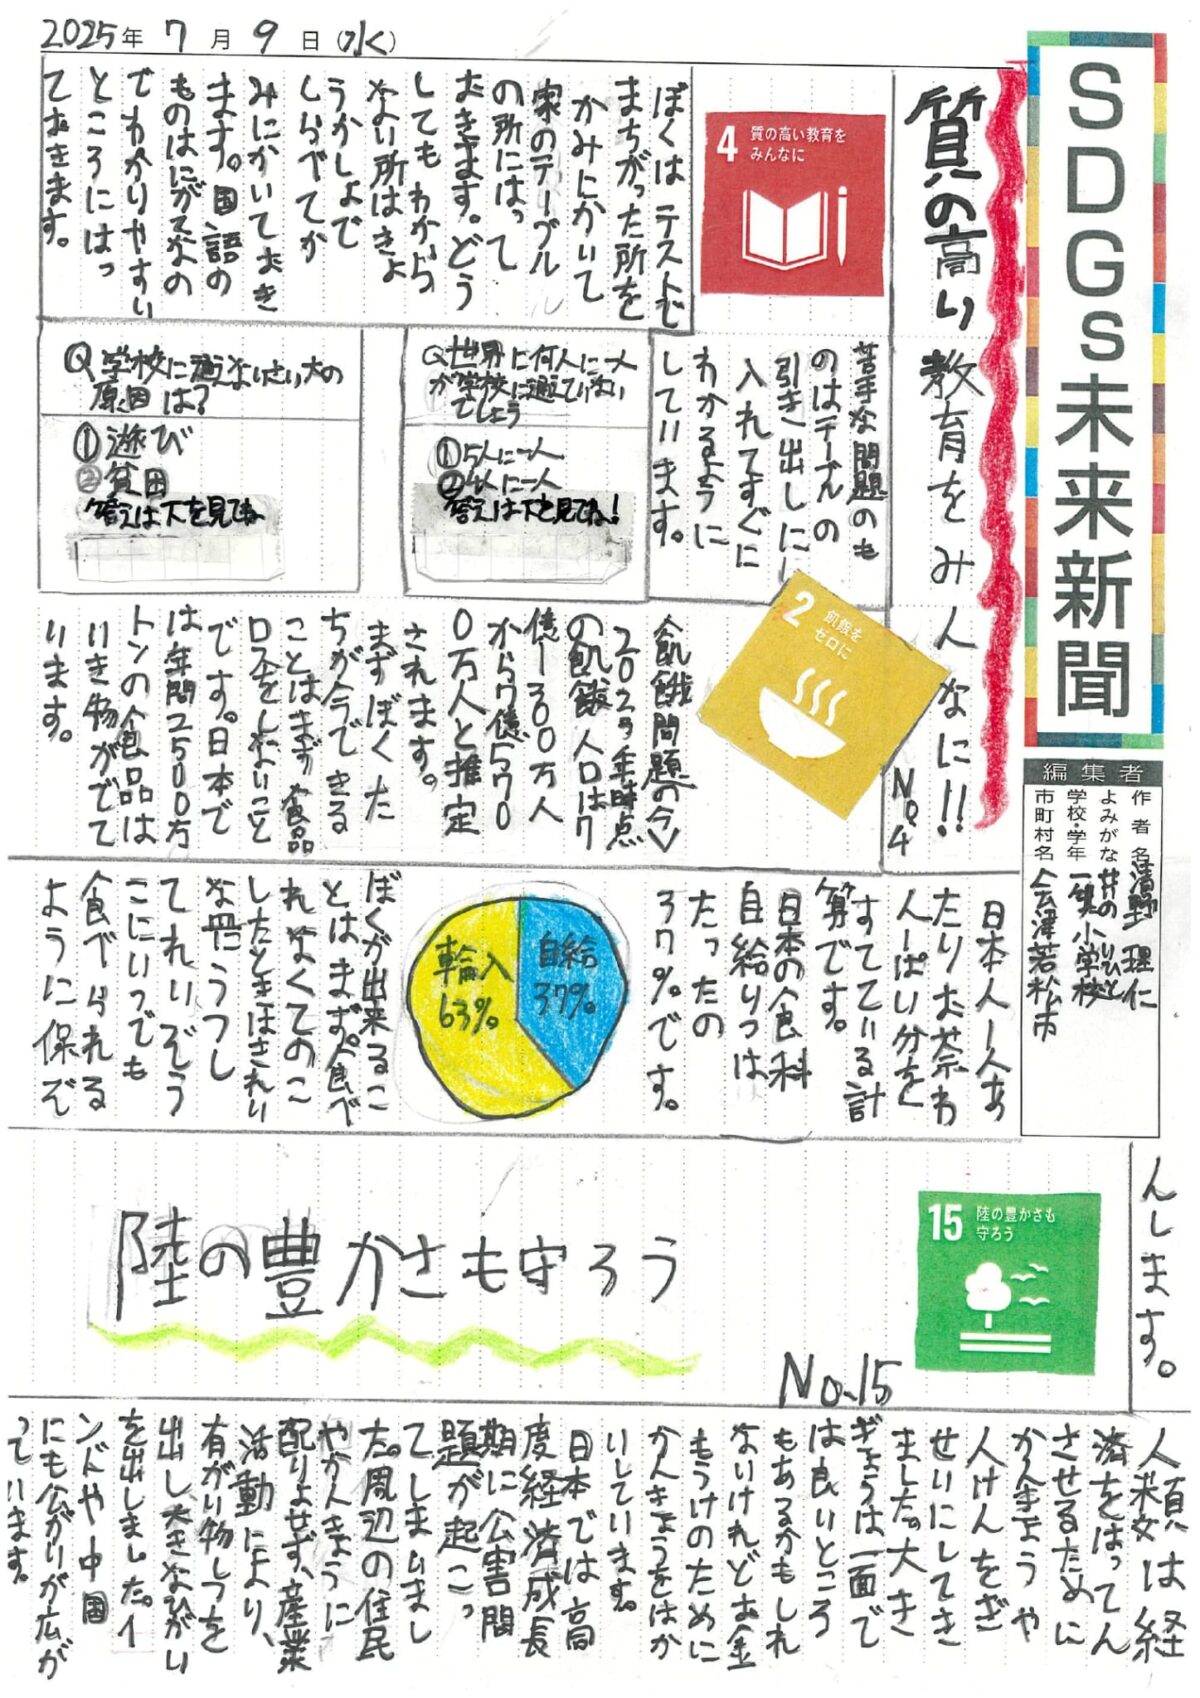 2025年7月9日(水)
SDGs未来新聞
編集者
作者名 清野 理仁
よみがな せいの りひと
学校・学年 一箕小学校
市町村名 会津若松市
質の高い教育をみんなに!!
No.4
4 質の高い教育を
みんなに
ぼくはテストで
まちがった所を
かみにかいて
家のテーブル
の所にはって
おきます。どう
してもわから
ない所はきょ
うかしょで
しらべてか
みにかいておき
ます。国語の
ものはにがてなの
でわかりやすい
ところにはっ
ておきます。
苦手な問題のも
のはテーブルの
引き出しに
入れてすぐに
わかるように
しています。
Q世界に何人に一人
が学校に通えていない
でしょう
①5人に一人
②4人に一人
答えは下を見てね!
Q学校に通えないさい大の
原因は?
①遊び
②貧困
答えは下を見てね
2 飢餓を
ゼロに
飢餓問題の今
2023年時点
の飢餓人口は7
億1300万人
から7億570
0万人と推定
されます。
まずぼくた
ちが今できる
ことはまず食品
ロスをしないこと
です。日本で
は年間2500万
トンの食品は
いき物がでて
います。
日本人一人あ
たりお茶わ
ん一ぱい分を
すてている計
算です。
日本の食料
自給りつは
たったの
37%です。
自給
37%
輸入
63%
ぼくが出来るこ
とはまず。食べ
れなくてのこ
したときはきれい
な皿にうつし
てれいぞう
こにいつでも
食べられる
ように保ぞ
んします。
15 陸の豊かさも
守ろう
陸の豊かさも守ろう
No.15
人類は経
済をはってん
させるために
かんきょうや
人けんをぎ
せいにしてき
ました。大き
ぎょうは一面で
は良いところ
もあるかもしれ
ないけれどお金
もうけのために
かんきょうをはか
いしています。
日本では高
度経済成長
期に公害問
題が起こっ
てしまいまし
た。周辺の住民
やかんきょうに
配りょせず、産業
活動により、
有がい物しつを
出し、大きなひがい
を出しました。イ
ンドや中国
にも公がいが広が
っています。